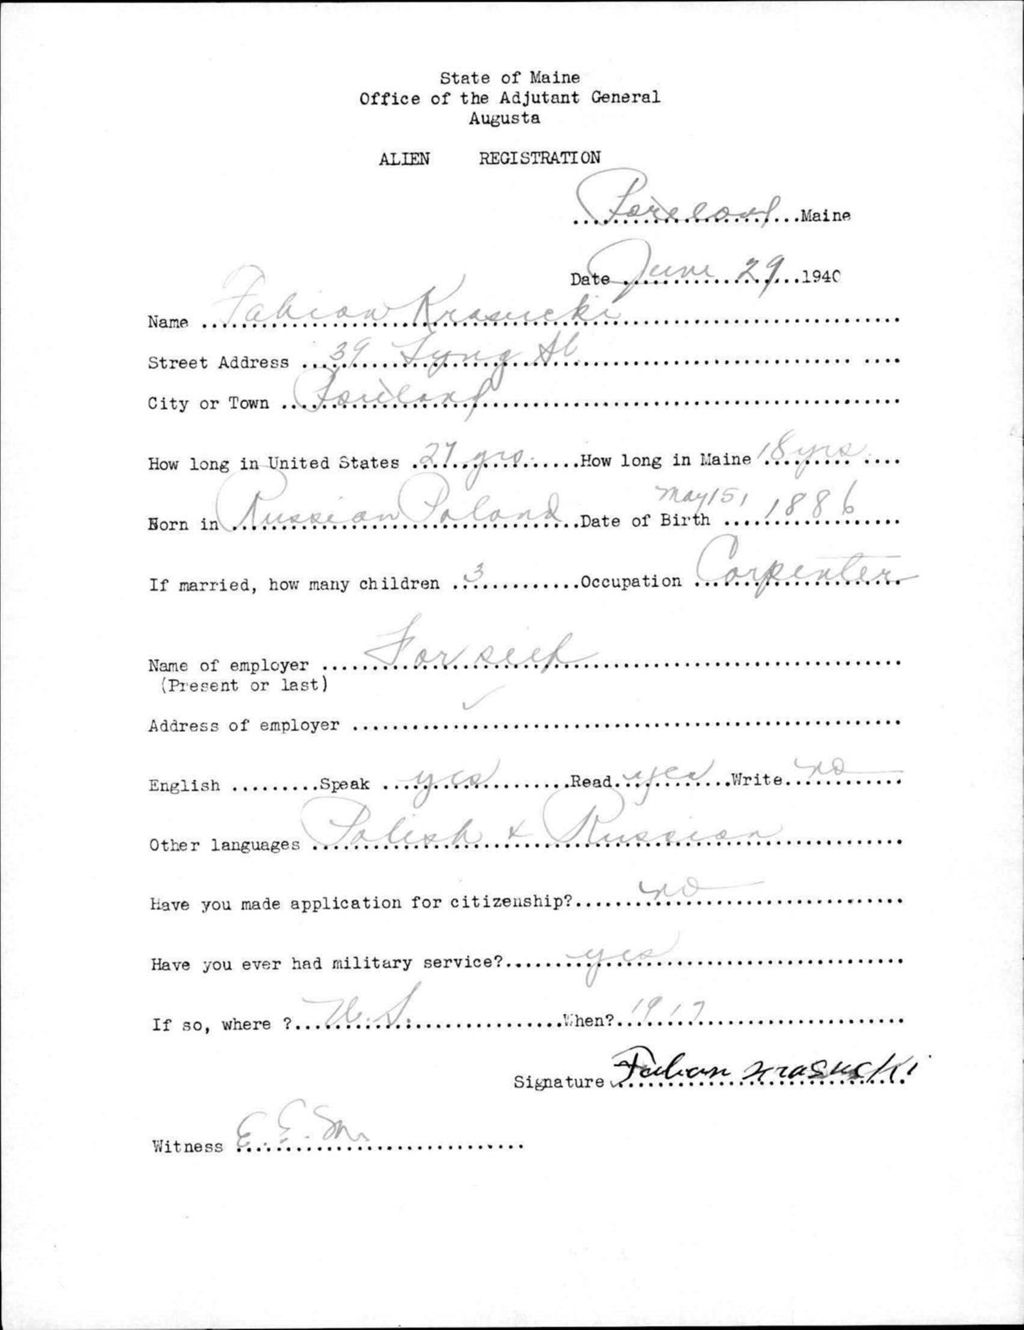 State of Maine
Office of the Adjutant General
Augusta
ALIEN REGISTRATION
Portland Maine
Date June 29 1940
Name Fabian Krasucki
Street Address 39 St.
City or Town Portland
How long in United States 27 yrs. How long in Maine 18 yrs.
Born in Russian Poland Date of Birth May 15, 1886
If married, how many children 3 Occupation Carpenter
Name of employer For self
(Present or last)
Address of employer
English Speak yes Read yes Write no
Other languages Polish & Russian
Have you made application for citizenship? no
Have you ever had military service? yes
If so, where ? U. S. When? 1917
Signature Fabian Krasucki
Witness E. E. M.